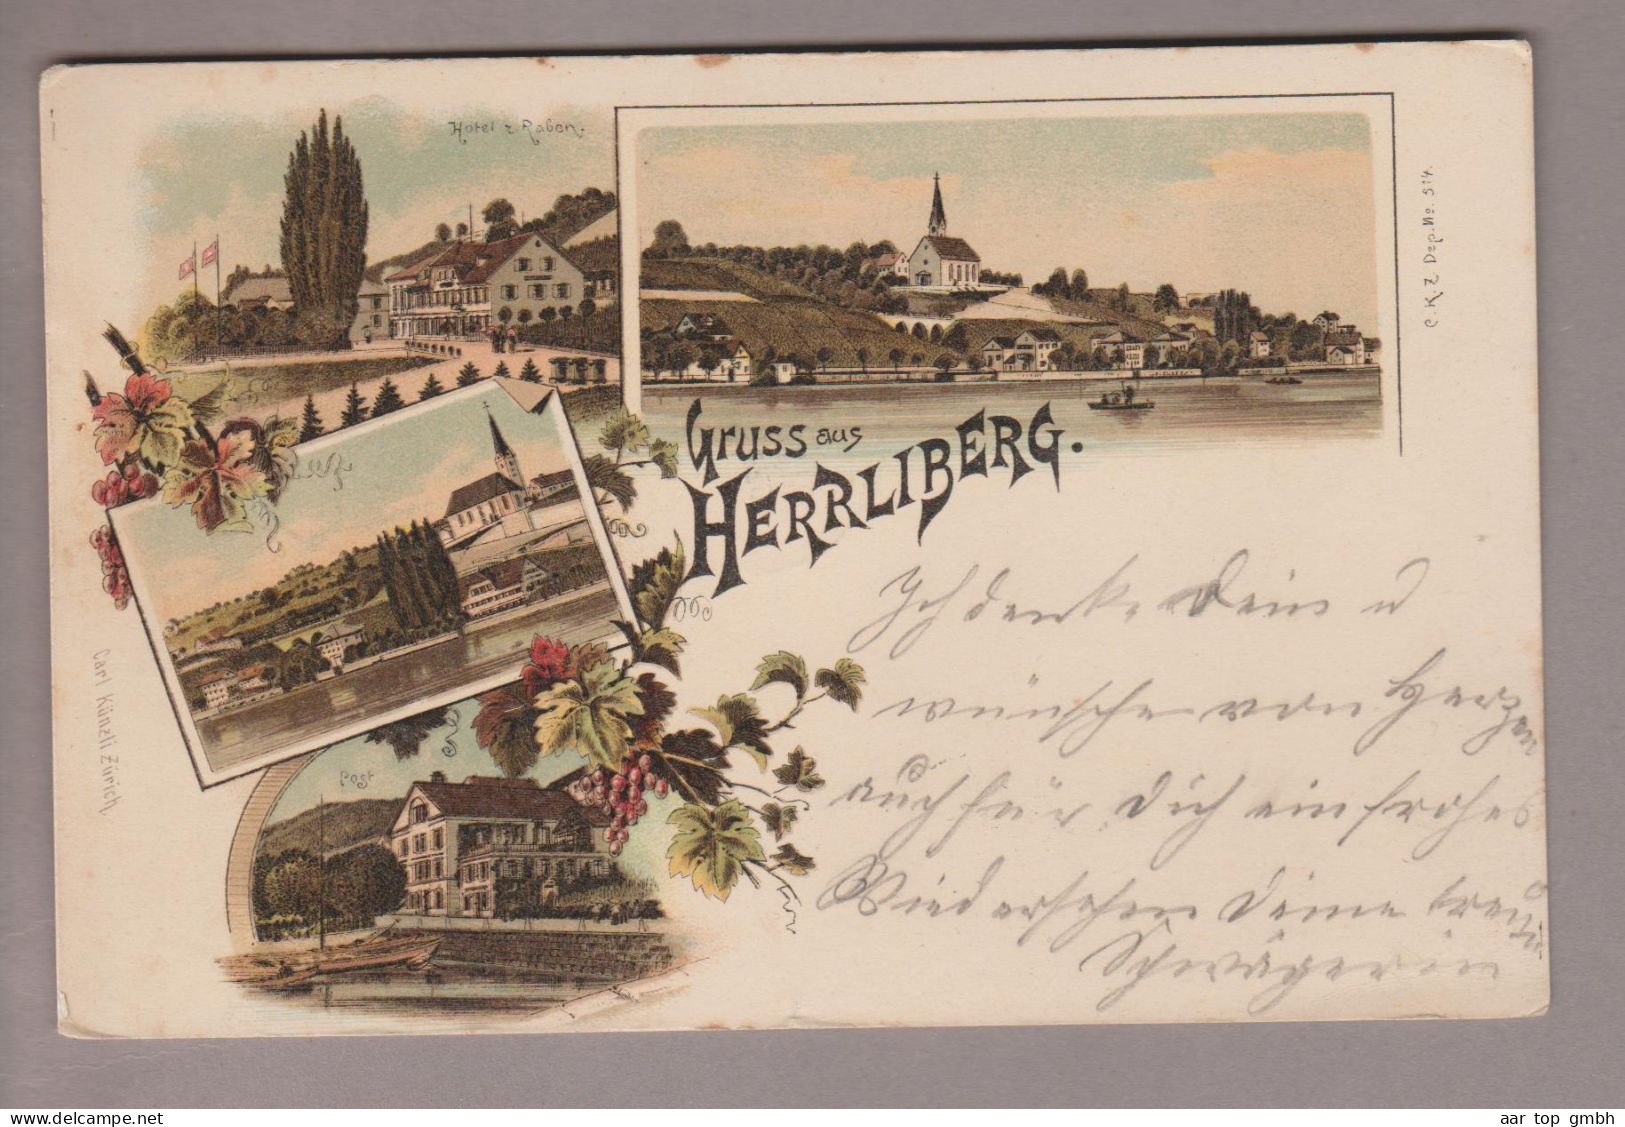 Hotel z Raben.
C. K. Z. Dep. No. 514.
Gruss aus
HERRLIBERG.
Carl Künzli Zürich
Post
Ich denke Dein u
wünsche von Herzen
auch für Dich ein frohes
Wiedersehen Deine treue
Schwägerin
aar top gmbh